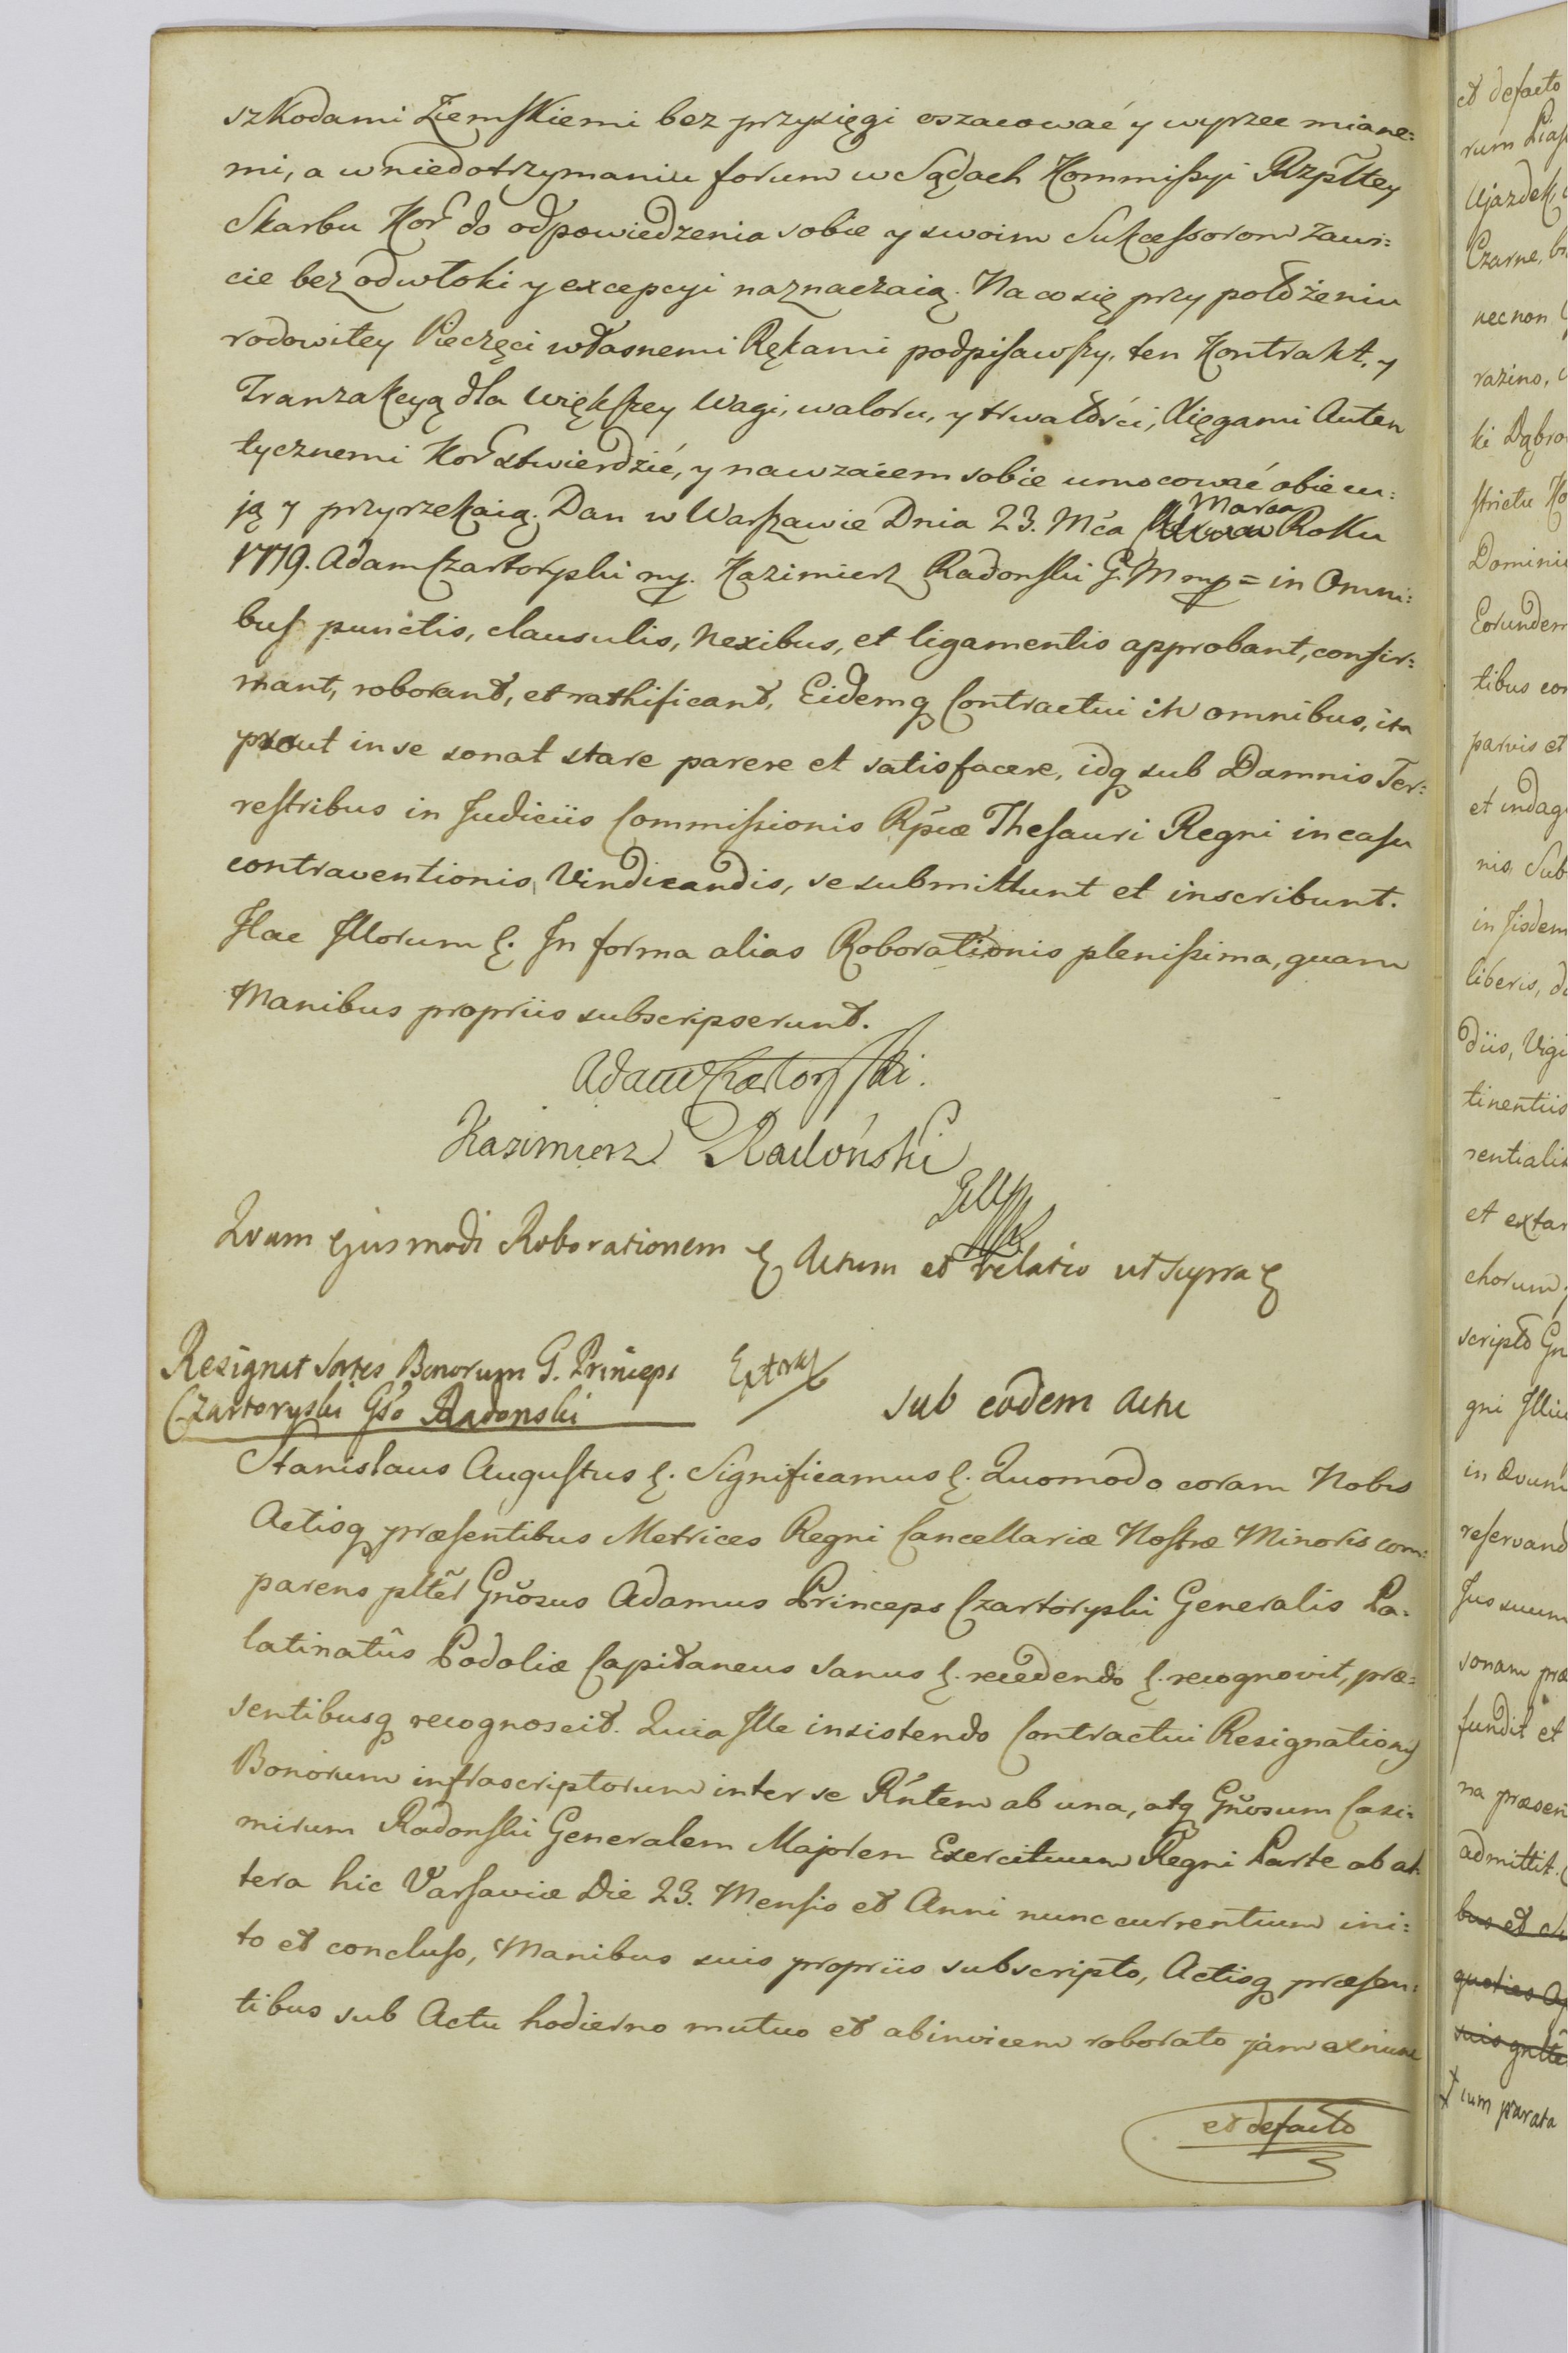 szkodami Ziemskiemi bez przysięgi oszacować y wyprzec miane:
mi, a w niedotrzymaniu forum w Sądach Kommissyi Rzpltey
Skarbu Kor do odpowiedzenia sobie y swoim Sukcessorom zawi:
cie bez odwłoki y excepcyi naznaczaią. Na co się przy położeniu
rodowitey Pieczęci własnemi Rękami podpisawszy, ten Kontrakt, y
Tranzakcyą dla większey Wagi, waloru, y trwałości, Xięgami Auten
tycznemi Kor stwierdzić, y nawzaiem sobie umocować obiecu:
ją y przyrzekaią. Dan w Warszawie Dnia 23. Mca Marca Roku
1779. Adam Czartoryski mp. Kazimierz Radonski G. M mp = in Omni:
bus punctis, clausulis, Nexibus, et ligamentis approbant, confir:
mant, roborant, et rathificant, Eidemq Contractui in omnibus, ita
prout in se sonat stare parere et satisfacere, idq sub Damnis Ter:
restribus in Judiciis Commissionis Rpcæ Thesauri Regni in casu
contraventionis Vindicandis, se submittunt et inscribunt.
Hac Illorum &. In forma alias Roborationis plenissima, quam
Manibus propriis subscripserunt.
Adam Czartoryski.
Kazimierz Radoński
GM mp
Quam ejusmodi Roborationem & Actum et relatio ut supra &
Resignat Sortes Bonorum G. Princeps
Czartoryski Gso Radonski
Extrad
sub eodem Actu
Stanislaus Augustus &. Significamus &. Quomodo coram Nobis
Actisq præsentibus Metrices Regni Cancellariæ Nostræ Minoris com:
parens pltēr Gnŏsus Adamus Princeps Czartoryski Generalis Pa:
latinatûs Podoliæ Capitaneus sanus &. recedendo &. recognovit, præ:
sentibusq recognoscit. Quia Ille insistendo Contractui Resignationis
Bonorum infrascriptorum inter se Rńtem ab una, atq Gnŏsum Casi:
mirum Radonski Generalem Majorem Exercituum Regni Parte ab al
tera hic Varsaviæ Die 23. Mensis et Anni nunc currentium ini:
to et concluso, Manibus suis propriis subscripto, Actisq præsen:
tibus sub Actu hodierno mutuo et abinvicem roborato jam exnunc
et defacto
et defacto
Ujazdek,
Czarne,
necnon
razino,
strictu
Eorundem
tibus
parvis et
in Iisdem
liberis,
tinentiis
et
chorum
gni
Jus suum
sonam
fundit et
na
admittit.
bus et
quoties
suis
ium parata